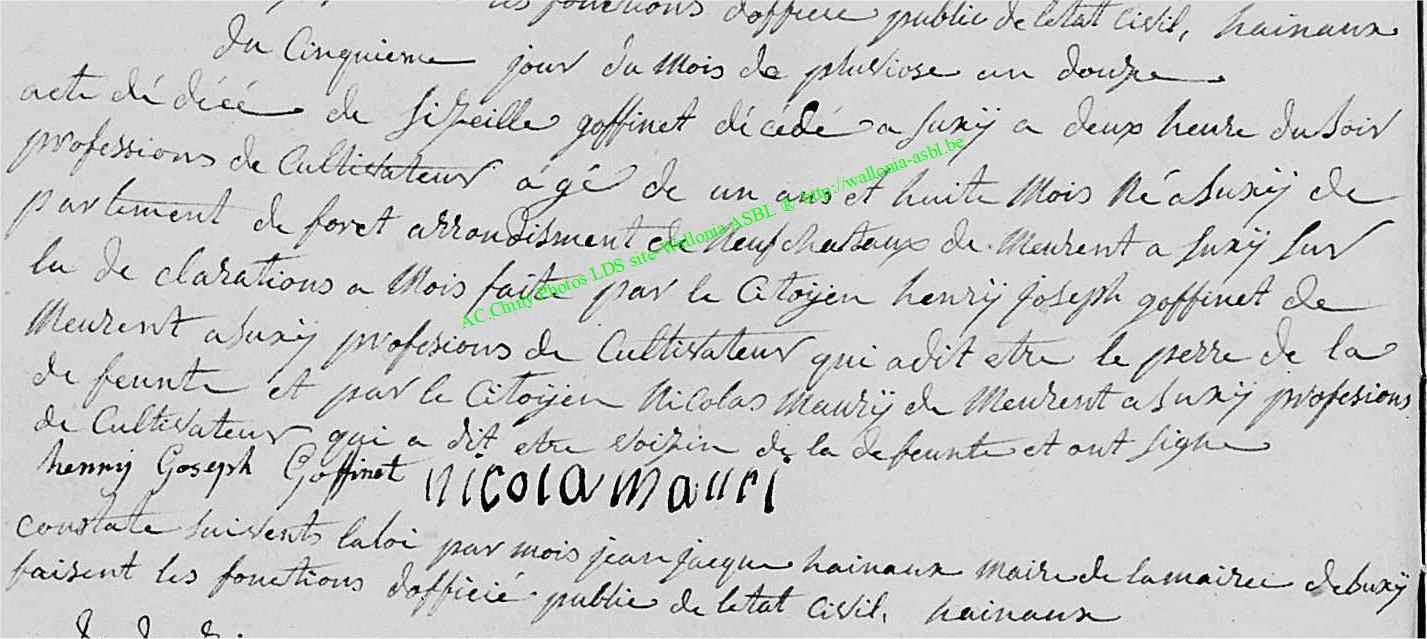 les fonctions dofficié public de letat Civil, hainaux
du Cinquieme jour du Mois de pluviose an douze
acte dé décé de Sizeille goffinet décédé a Suxÿ a deux heure du Soir
professions de Cultivateur agé de un ans et huite Mois Né a Suxÿ de
partement de foret arrondisment de Neufchateaux de Meurent a Suxÿ Sur
la de clarations a Mois faite par le Citoÿen henrÿ joseph goffinet de
Meurent a Suxÿ profesions de Cultivateur qui a dit etre le perre de la
de feunte et par le Citoÿen Nicolas Maurÿ de Meurent a Suxÿ profesions
de Cultivateur qui a dit etre Voizin de la defeunte et ont Signe
henrij Goseph Goffinet nicola mauri
constate suivents la loi par mois jean jacque hainaux maire de la mairei de Suxÿ
faisent les fonctions dofficié public de letat Civil, hainaux
AC.Chiny Photos LDS site Wallonia ASBL @ http://wallonia-asbl.be